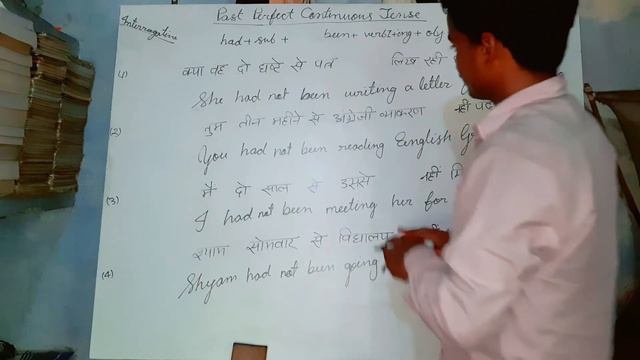 Past Perfect Continuous Tense
Interrogative
had + sub + been + verb I + ing + obj
(1) क्या वह दो घण्टे से पत्र लिख रही
She had not been writing a letter
(2) तुम तीन महीने से अंग्रेजी व्याकरण नहीं
You had not been reading Eenglish
(3) मैं दो साल से उससे नहीं
I had not been meeting her for
श्याम सोमवार से विद्यालय
(4) Shyam had not been going